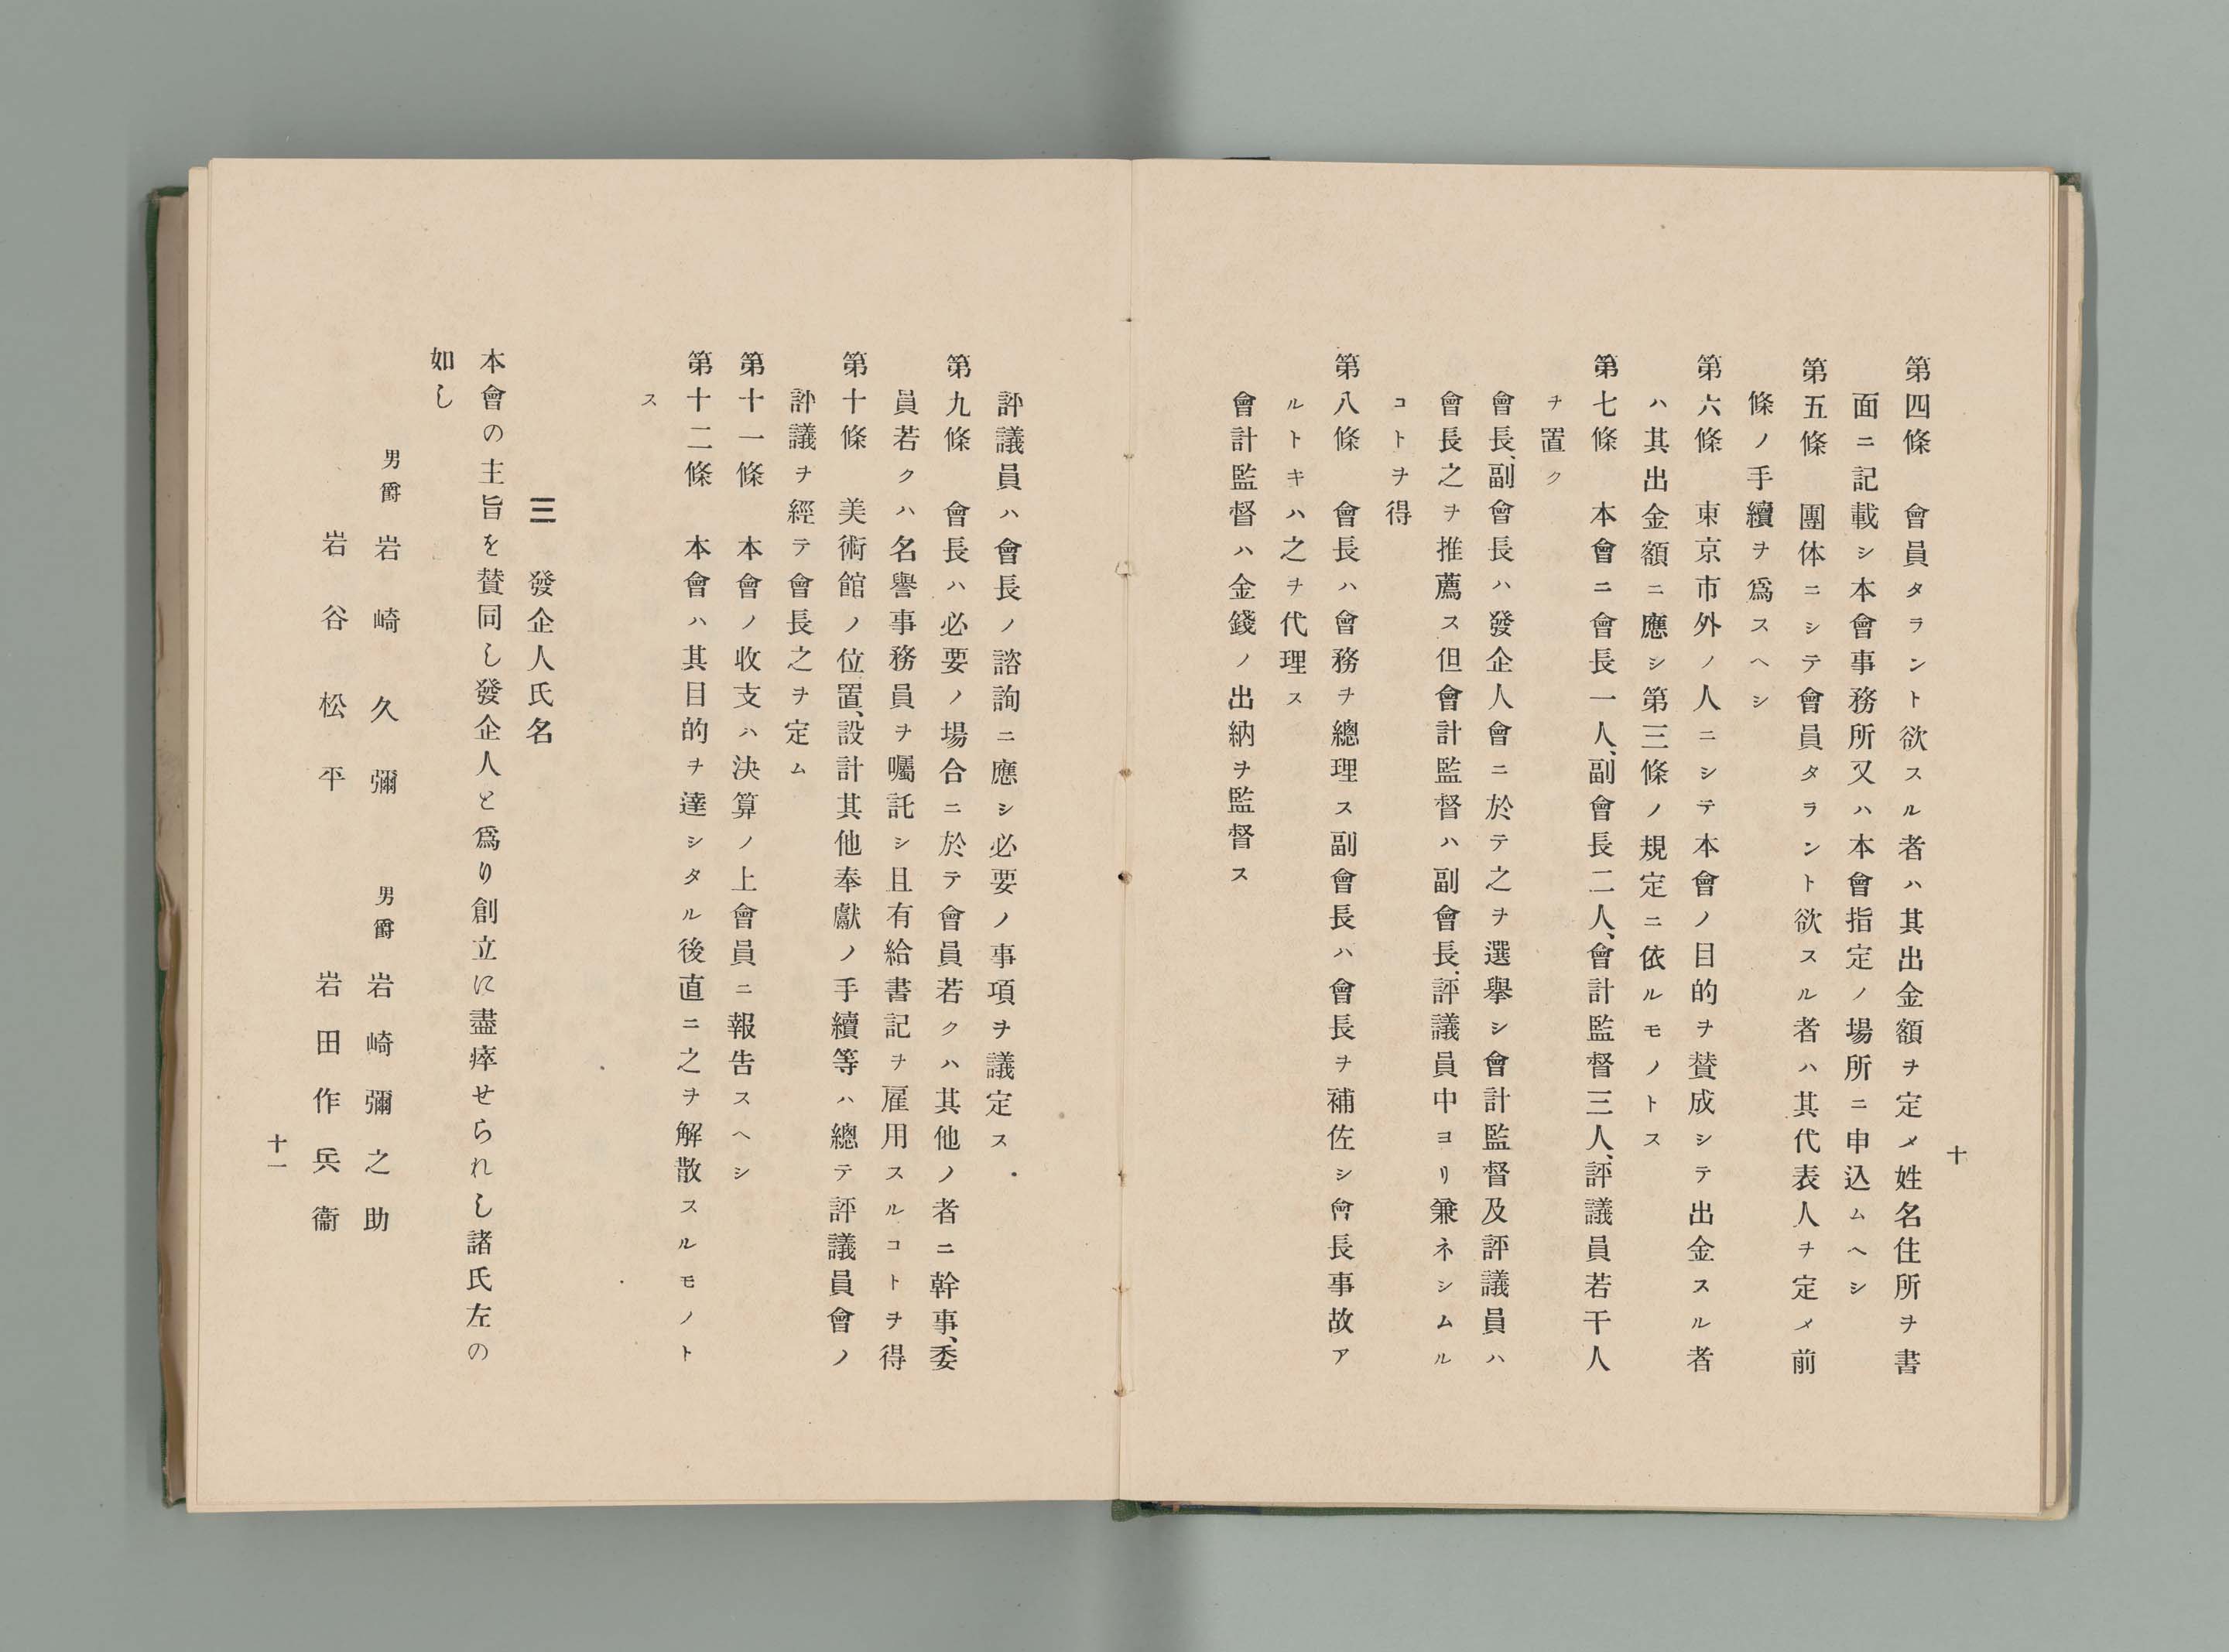 第四條　會員タラント欲スル者ハ其出金額ヲ定メ姓名住所ヲ書
面ニ記載シ本會事務所又ハ本會指定ノ場所ニ申込ムヘシ
第五條　團体ニシテ會員タラント欲スル者ハ其代表人ヲ定メ前
條ノ手續ヲ爲スヘシ
第六條　東京市外ノ人ニシテ本會ノ目的ヲ賛成シテ出金スル者
ハ其出金額ニ應シ第三條ノ規定ニ依ルモノトス
第七條　本會ニ會長一人、副會長二人、會計監督三人、評議員若干人
ヲ置ク
會長、副會長ハ發企人會ニ於テ之ヲ選擧シ會計監督及評議員ハ
會長之ヲ推薦ス但會計監督ハ副會長、評議員中ヨリ兼ネシムル
コトヲ得
第八條　會長ハ會務ヲ總理ス副會長ハ會長ヲ補佐シ會長事故ア
ルトキハ之ヲ代理ス
會計監督ハ金錢ノ出納ヲ監督ス
十
評議員ハ會長ノ諮詢ニ應シ必要ノ事項ヲ議定ス
第九條　會長ハ必要ノ場合ニ於テ會員若クハ其他ノ者ニ幹事、委
員若クハ名譽事務員ヲ囑託シ且有給書記ヲ雇用スルコトヲ得
第十條　美術館ノ位置、設計其他奉獻ノ手續等ハ總テ評議員會ノ
評議ヲ經テ會長之ヲ定ム
第十一條　本會ノ收支ハ決算ノ上會員ニ報告スヘシ
第十二條　本會ハ其目的ヲ達シタル後直ニ之ヲ解散スルモノト
ス
三　發企人氏名
本會の主旨を賛同し發企人と爲り創立に盡瘁せられし諸氏左の
如し
男爵 岩崎久彌　男爵 岩崎彌之助
岩谷松平　岩田作兵衞
十一